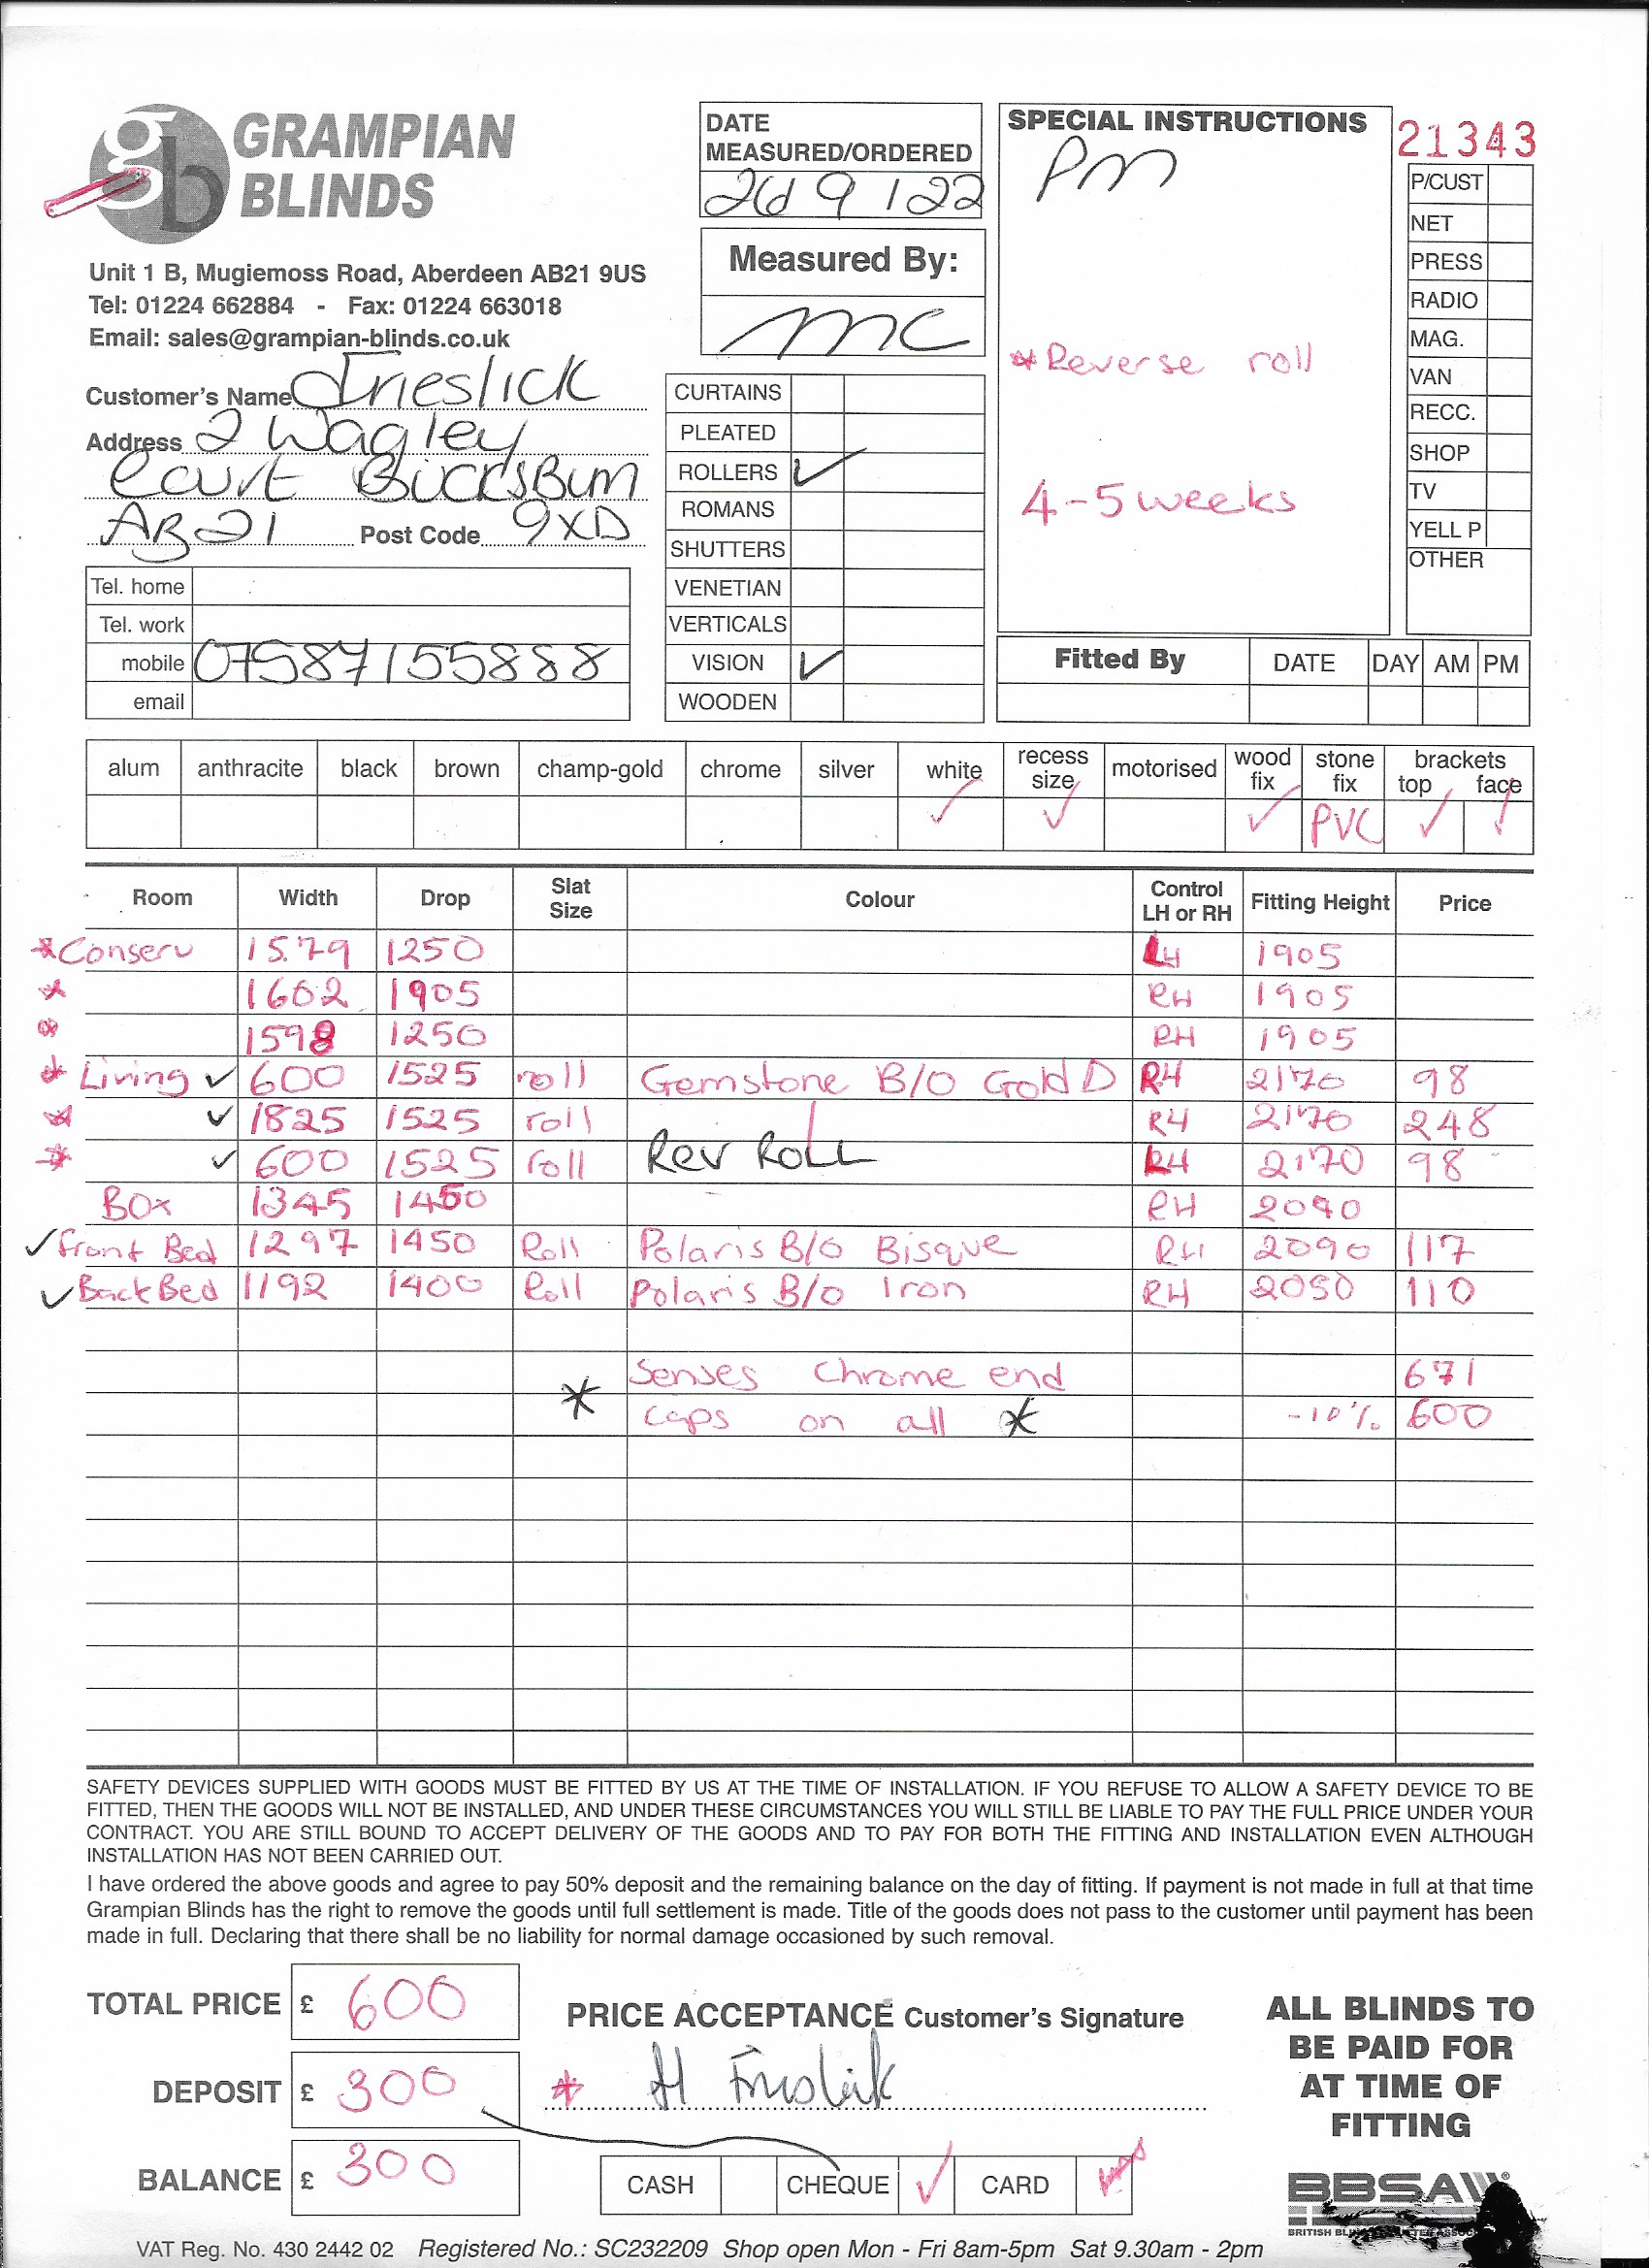 GRAMPIAN BLINDS
Unit 1 B, Mugiemoss Road, Aberdeen AB21 9US
Tel: 01224 662884 - Fax: 01224 663018
Email: sales@grampian-blinds.co.uk
DATE MEASURED/ORDERED
26 9 122
Measured By:
MC
SPECIAL INSTRUCTIONS
PM
*Reverse roll
4-5 weeks
21343
P/CUST
NET
PRESS
RADIO
MAG.
VAN
RECC.
SHOP
TV
YELL P
OTHER
Customer's Name
Address 2 Wagley
Court BucksBurn
AB21 Post Code 9XD
Tel. home
Tel. work
mobile 07587155888
email
CURTAINS
PLEATED
ROLLERS ✓
ROMANS
SHUTTERS
VENETIAN
VERTICALS
VISION ✓
WOODEN
Fitted By DATE DAY AM PM
alum anthracite black brown champ-gold chrome silver white recess size motorised wood fix stone fix brackets top face
✓ ✓ ✓ PVC ✓ ✓
Room Width Drop Slat Size Colour Control LH or RH Fitting Height Price
*Conserv 1579 1250 LH 1905
* 1602 1905 RH 1905
* 1598 1250 RH 1905
* Living ✓ 600 1525 roll Gemstone B/O Gold D RH 2170 98
* ✓ 1825 1525 roll RH 2170 248
* ✓ 600 1525 roll Rev Roll LH 2170 98
Box 1345 1450 RH 2090
✓ Front Bed 1297 1450 Roll Polaris B/O Bisque RH 2090 117
✓ Back Bed 1192 1400 Roll Polaris B/O Iron RH 2050 110
Senses Chrome end 671
* caps on all * -10% 600
SAFETY DEVICES SUPPLIED WITH GOODS MUST BE FITTED BY US AT THE TIME OF INSTALLATION. IF YOU REFUSE TO ALLOW A SAFETY DEVICE TO BE
FITTED, THEN THE GOODS WILL NOT BE INSTALLED, AND UNDER THESE CIRCUMSTANCES YOU WILL STILL BE LIABLE TO PAY THE FULL PRICE UNDER YOUR
CONTRACT. YOU ARE STILL BOUND TO ACCEPT DELIVERY OF THE GOODS AND TO PAY FOR BOTH THE FITTING AND INSTALLATION EVEN ALTHOUGH
INSTALLATION HAS NOT BEEN CARRIED OUT.
I have ordered the above goods and agree to pay 50% deposit and the remaining balance on the day of fitting. If payment is not made in full at that time
Grampian Blinds has the right to remove the goods until full settlement is made. Title of the goods does not pass to the customer until payment has been
made in full. Declaring that there shall be no liability for normal damage occasioned by such removal.
TOTAL PRICE £ 600
DEPOSIT £ 300
BALANCE £ 300
PRICE ACCEPTANCE Customer's Signature
*
CASH CHEQUE ✓ CARD
ALL BLINDS TO
BE PAID FOR
AT TIME OF
FITTING
BBSA
BRITISH
VAT Reg. No. 430 2442 02 Registered No.: SC232209 Shop open Mon - Fri 8am-5pm Sat 9.30am - 2pm